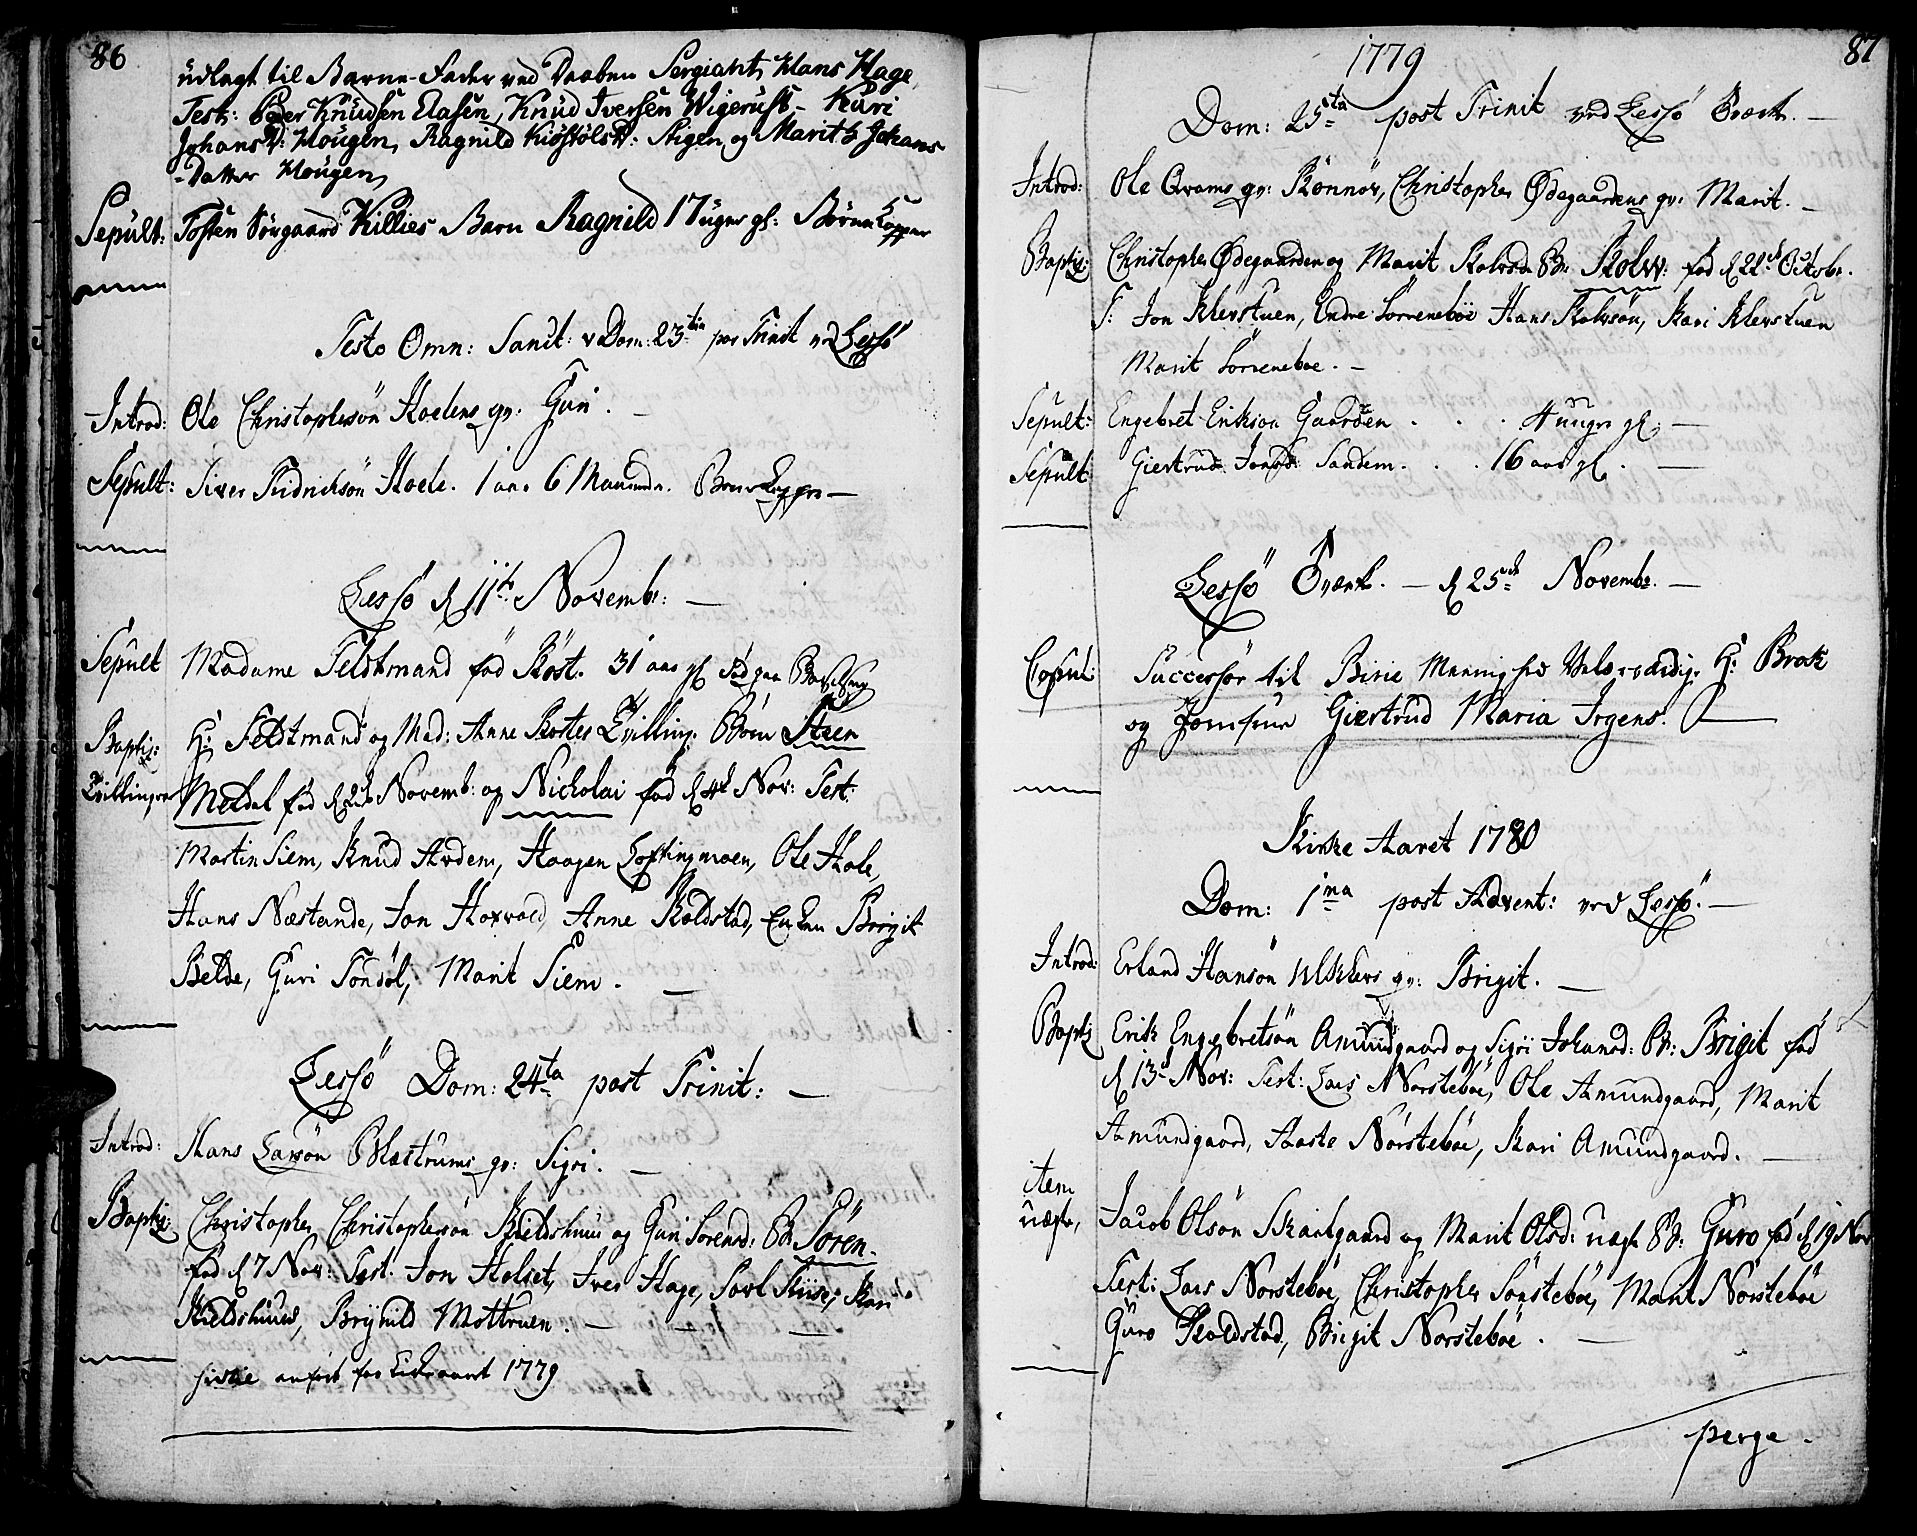 86
udlagt til Barne-Fader ved Daaben Sergiant Hans Hage
Test: Peder Knudsen Elasen, Knud Iversen Wigerust - Kari
Johans D: Hougen, Ragnild Kiøstols D: Stigen og Marit Johans
-Datter Hougen,
Sepult: Tosten Sörgaard Killies Barn Ragnild 17 uger gl: Börne Kopper
Festo Omn: Sanct: v Dom: 23 tia post Trinit ved Lessö
Introd: Ole Christophersön Hoelens qv: Guri. -
Sepult: Siver Fridrichsön Hoele. 1 aar 6 Maaneder. Börne Kopper -
Lessö d 11te Novembr: -
Sepult Madame Feldtmand föd Röst. 31 aar gl död paa Barselseng
Baptiz: Hr Feldtmand og Mad: Anne Röstes Tvilling: Börn Steen
Tvillinger Meldal föd d 2d Novemb: og Nickolai föd d 4d Nov: Test:
Martin Siem, Knud Ardem, Haagen Loftingsmoen, Ole Hole,
Hans Næstande, Jon Horvold, Anne Koldstad, Enken Brigit
Belde, Guri Tondöl, Marit Siem. -
Lessö Dom: 24ta post Trinit: -
Introd: Hans Larsön Blæstrums qv: Sigri. -
Baptiz: Christopher Christophersön Kieldshuus og Guri Sorensd: B: Sören
föd d 7 Nov: Test: Jon Holset, Iver Hage, Kari
Kieldshuus, Brynild Mottruen. - - -
anfört for Kirkeaaret 1779
1779
87
Dom: 25ta post Trinit ved Lessö Værk. -
Introd: Ole Qvams qv: Rönnov, Christopher Ødegaardens qv: Marit. -
Baptiz: Christopher Ødegaarden og Marit Rolvsd. B: Rolv: föd d 22d Octobr.
T: Jon Klevstuen, Endre Sörreneböe Hans Rolvsön, Kari Klevstuen
Marit Sorreneboe. -
Sepult: Engebret Erikson Gaarden . . . 4 uuger gl: -
Sepult Giertrud Jonsd: Sandem. . . 16 aar gl. -
Lessö Værk. - d 25d Novembr. -
Copul: Successor til Birie Menninghed Velærværdige Hr: Brok
og Jomfrue Giertrud Maria Irgens. -
Kirke Aaret 1780
Dom: 1ma post Advent: ved Lessö. -
Introd: Erland Hansön Ulekleivs qv: Brigit. -
Baptz Erik Engebretsön Amundgaard og Sigri Johansd: B: Brigit föd
d 13d Nov: Test: Lars Norsteböe, Ole Amundgaard, Marit
Amundgaard, Aaste Nörsteböe, Kari Amundgaard. -
item
uægte, Jacob Olsön Skartgaard og Marit Olsd: uægt B: Guro föd d 19 Nov
Test: Lars Norsteböe, Christopher Sönsteböe, Marit Nörsteböe
Guro Koldstad, Birgit Norsteböe. -
perge.